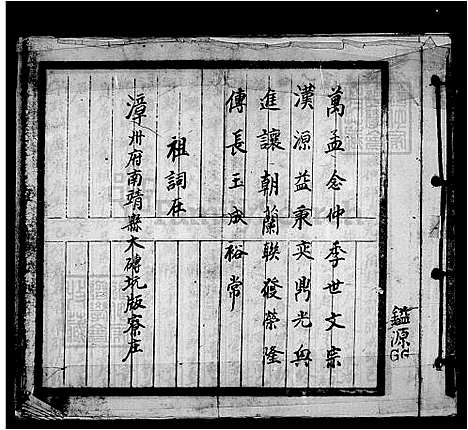 萬孟念仲季世文宗
漢源益秉奕鼎光與
進讓朝蘭聯發榮隆
傳長玉成裕常
祖詞在
漳州府南靖縣大磚坑版寮庄
鎰源
GG